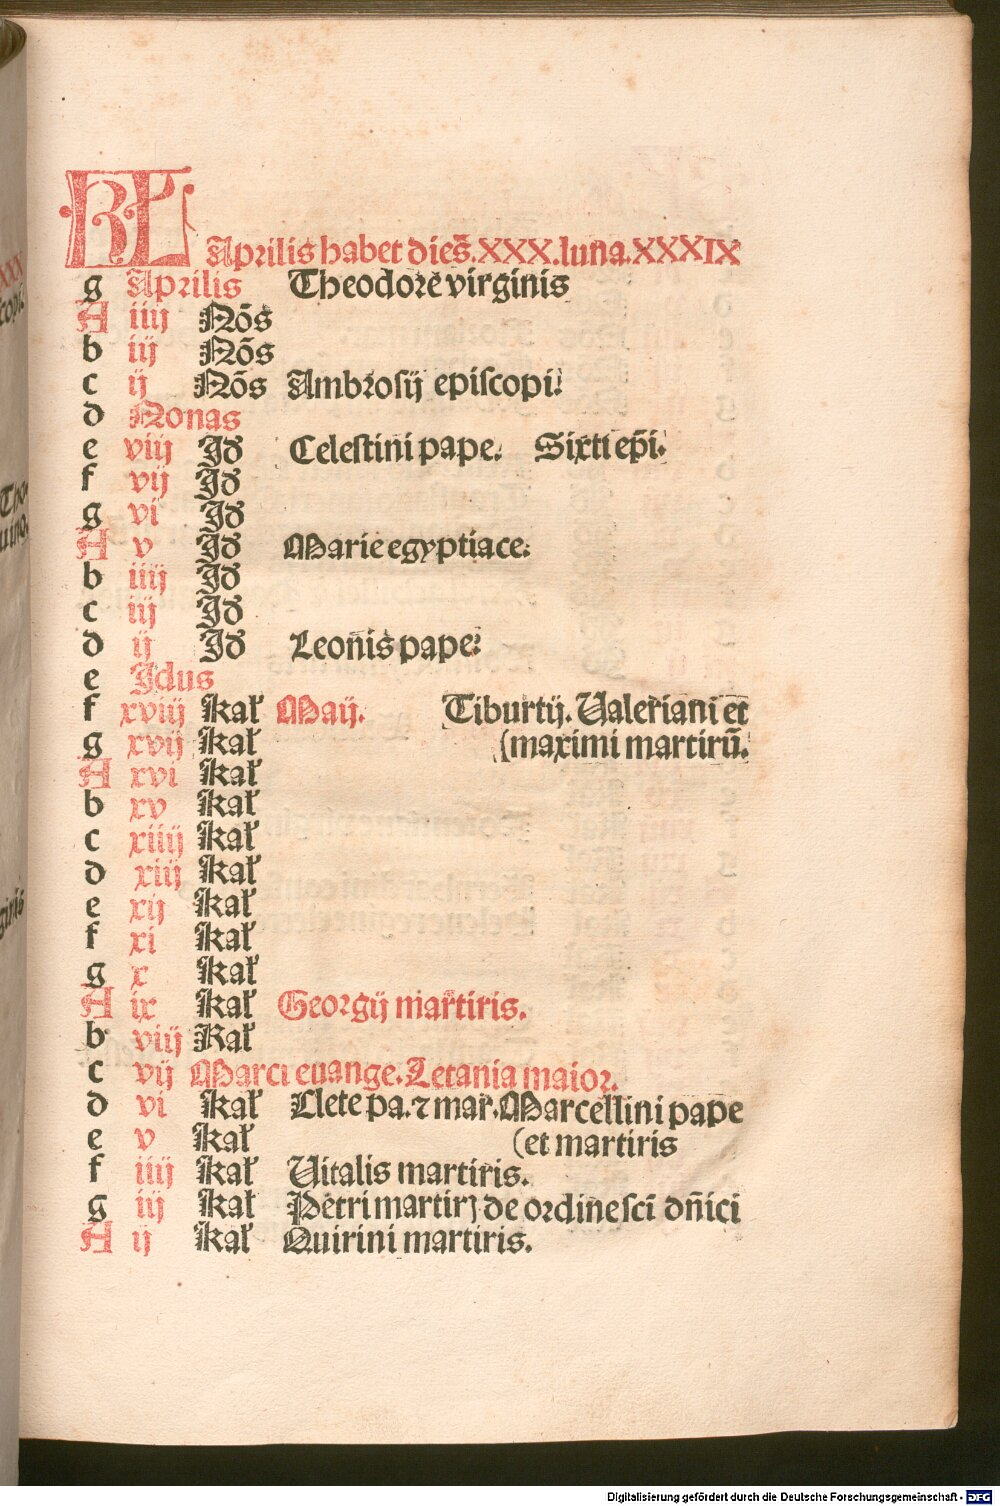 KL Aprilis habet dies̄.XXX.luna.XXXIX
g Aprilis Theodore virginis
A iiij Nōs
b iij Nōs
c ij Nōs Ambrosij episcopi.
d Nonas
e viij Id Celestini pape. Sixti ep̄i.
f vij Id
g vi Id
A v Id Marie egyptiace.
b iiij Id
c iij Id
d ij Id Leonis pape.
e Idus
f xviij kal' Maij. Tiburtij. Valeriani et
g xvij kal' (maximi martirū.
A xvi kal'
b xv kal'
c xiiij kal'
d xiij kal'
e xij kal'
f xi kal'
g x kal'
A ix kal' Georgij martiris.
b viij Kal'
c vij Marci euange. Letania maior.
d vi kal' Clete pa. ⁊ mar. Marcellini pape
e v kal' (et martiris
f iiij kal' Vitalis martiris.
g iij kal' Petri martirꝫ de ordine sci dn̄ici
A ij kal' Quirini martiris.
Digitalisierung gefördert durch die Deutsche Forschungsgemeinschaft - DFG